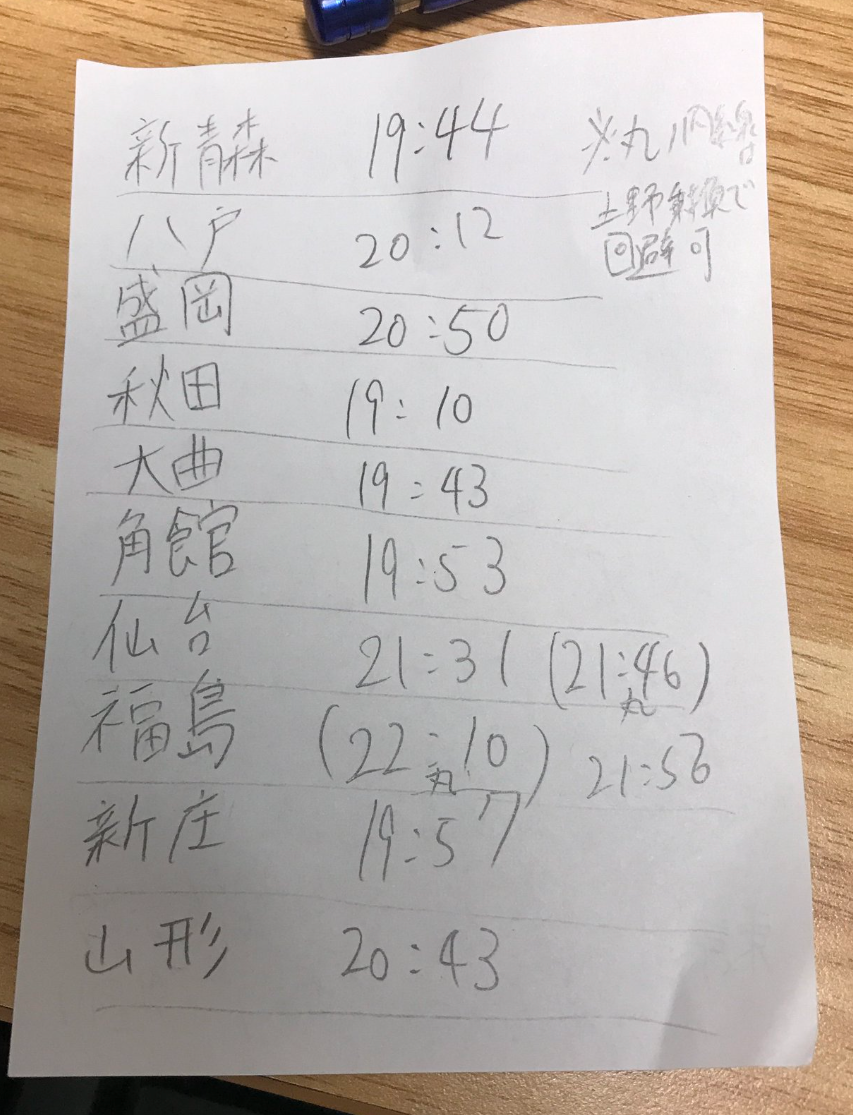 新青森 19:44 ※丸ノ内線は
上野乗換で
回避可
八戸 20:12
盛岡 20:50
秋田 19:10
大曲 19:43
角館 19:53
仙台 21:31 (21:46)
丸
福島 (22:10) 21:53
丸
新庄 19:57
山形 20:43